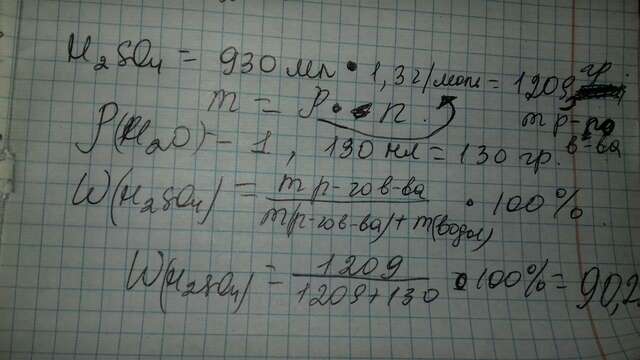 H₂SO₄ = 930 мл • 1,3 г/мол = 1209 гр.
m = P • n.
m р-го в-ва
P(H₂O) - 1, 130 мл = 130 гр.
W(H₂SO₄) = m р-гов-ва / m(р-гов-ва) + m(воды) • 100%
W(H₂SO₄) = 1209 / 1209+130 • 100% = 90,2